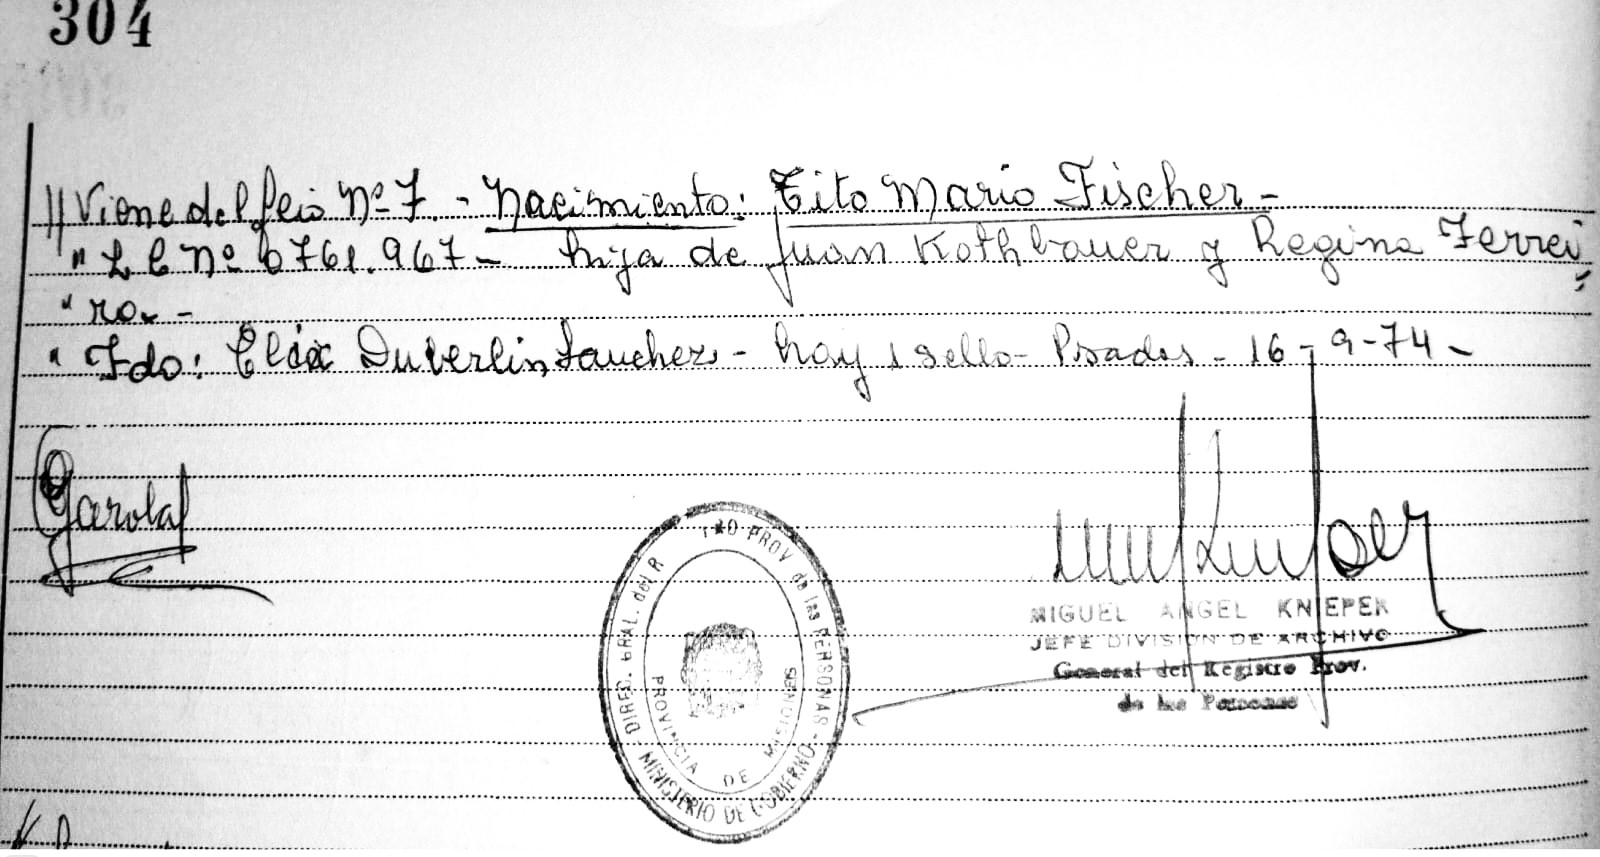 304
// Viene del folio Nº 7. - Nacimiento: Tito Mario Fischer -
" L C Nº 6761.967 - hija de Juan Kothbauer y Regina Ferrei
" ra. -
" Fdo: Duverlin Sanchez - hay 1 sello - Posadas - 16 - 9 - 74 -
DIREC. GRAL. del R TRO PROV de las PERSONAS - MINISTERIO DE GOBIERNO -
PROVINCIA DE MISIONES
MIGUEL ANGEL KNIEPER
JEFE DIVISION DE ARCHIVO
General del Registro Prov.
de las Personas